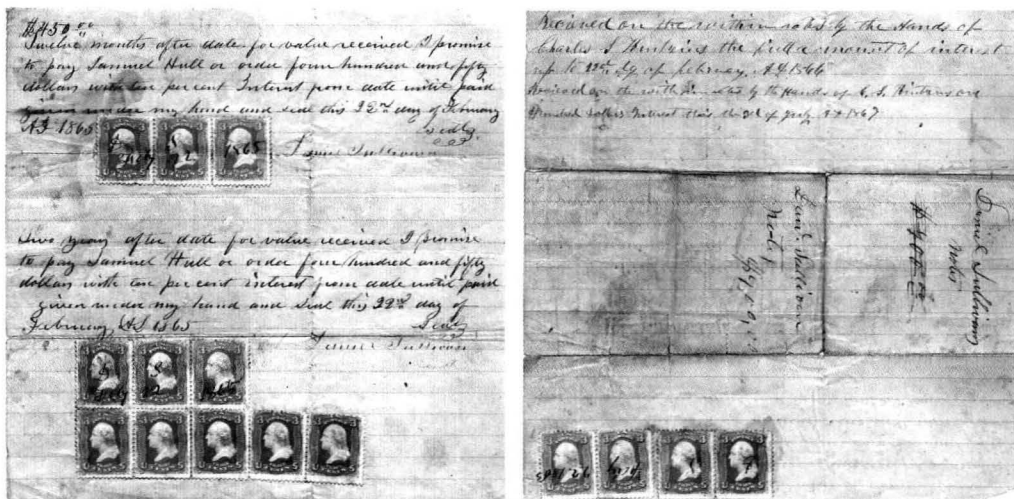 $450.00
Twelve months after date for value received I promise
to pay Samuel Hull or order four hundred and fifty
dollars with ten percent Interest from date until paid
given under my hand and seal this 22nd day of February
AD 1865
Seal
Daniel Sullivan
Two years after date for value received I promise
to pay Samuel Hull or order four hundred and fifty
dollars with ten percent interest from date until paid
given under my hand and seal this 22nd day of
February, AD 1865
Seal
Daniel Sullivan
Recieved on the within notes by the Hands of
Charles S the full amount of interest
up to 22nd dy of february, AD 1866
Recieved on the within notes by the Hands of C. S.
Hundred dollars Interest this the 3rd of July AD 1867
Danl. Sullivan
Notes
Daniel Sullivan
Notes
$900.00
1865
22
1865